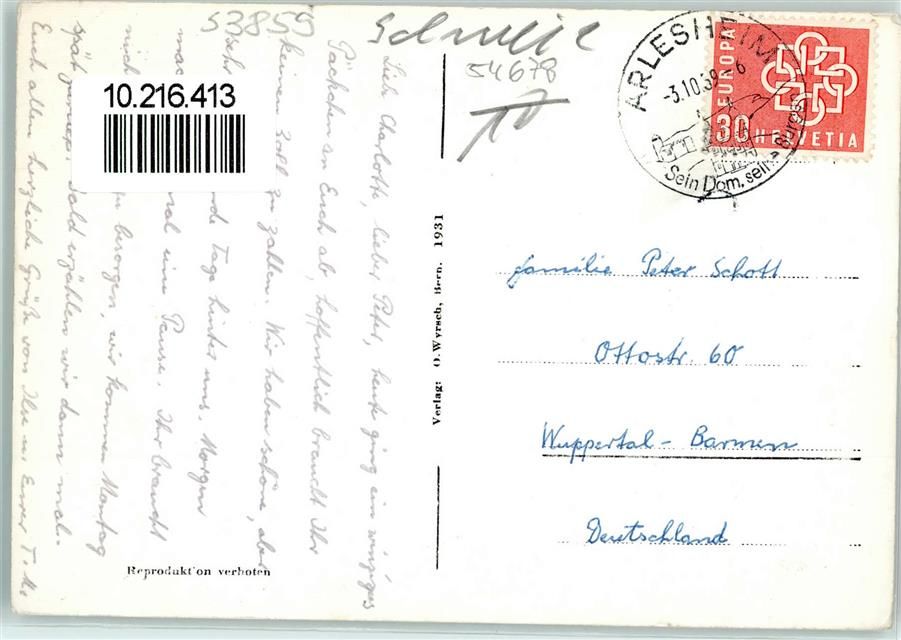 53859
Schweiz
54678
10.216.413
ARLESHEIM
-3.10.59-6
Sein Dom, sein
EUROPA
30 HELVETIA
Liebe Charlotte, lieber Peter, heute ging ein winziges
Päckchen an Euch ab, hoffentlich braucht Ihr
keinen Zoll zu zahlen. Wir haben schöne, aber
sehr Tage hinter uns. Morgen
mal eine Pause. Ihr braucht
zu besorgen, wir kommen Montag
spät bald erzählen wir dann mal.
Euch allen herzliche Grüße von Ilse u. Eurer T. M.
Verlag: O. Wyrsch, Bern. 1931
Familie Peter Schott
Ottostr. 60
Wuppertal-Barmen
Deutschland
Reprodukt'on verboten